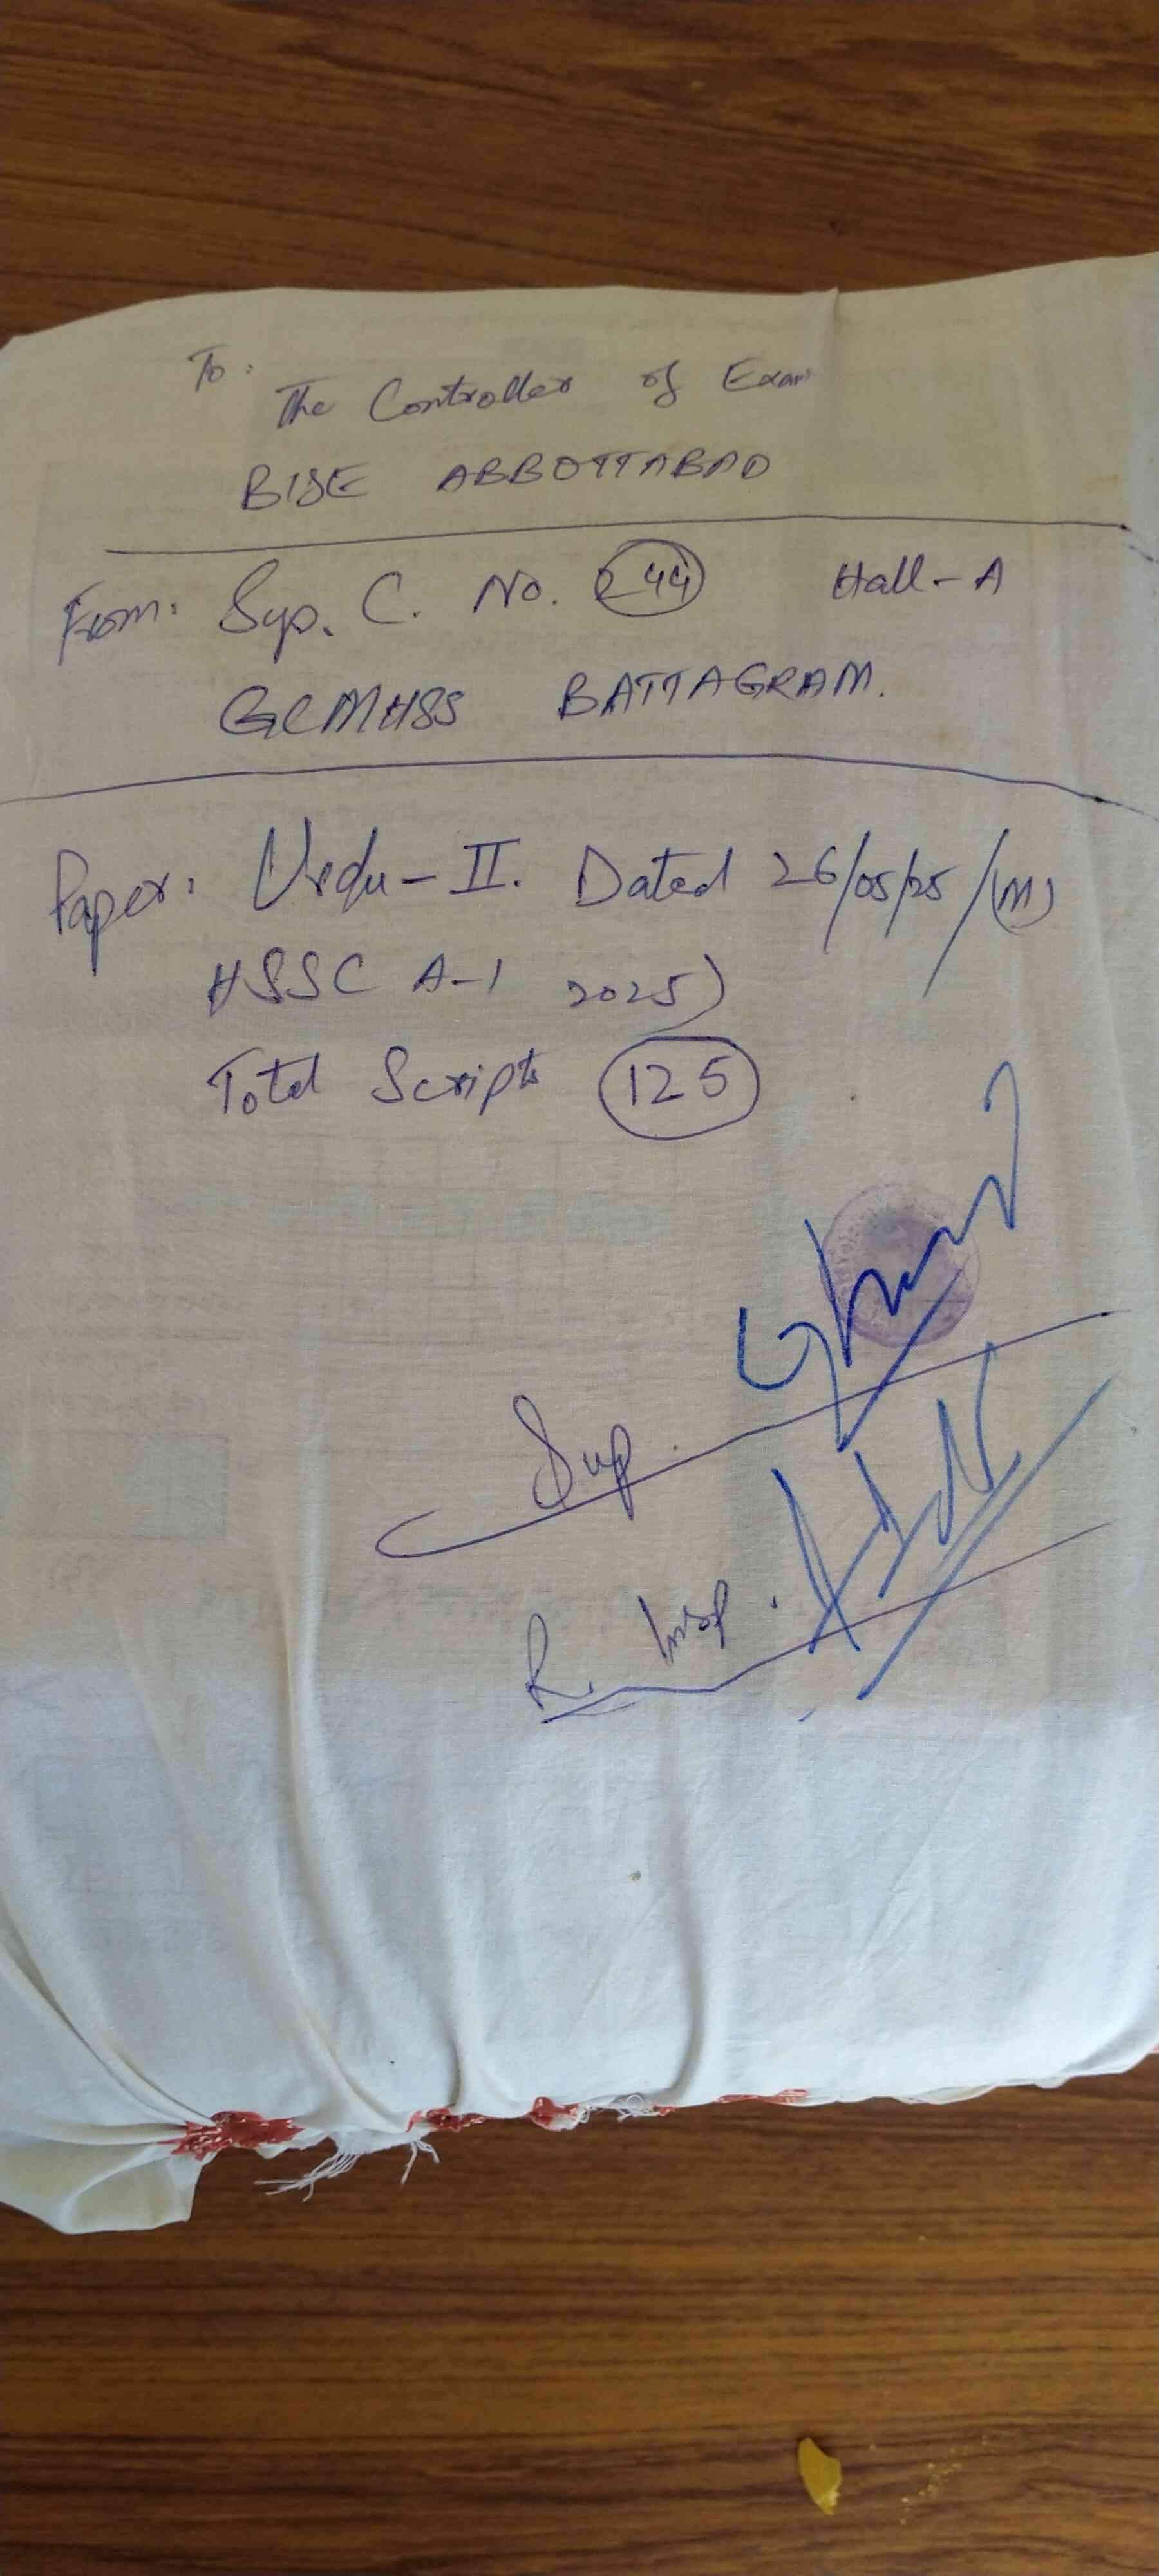 To:
The Controller of Exam
BISE ABBOTTABAD
From: Sup. C. No. 244 Hall-A
GCMHSS BATTAGRAM.
Paper: Urdu-II. Dated 26/05/25/(M)
HSSC A-1 2025)
Total Scripts 125
Sup.
R. Insp.